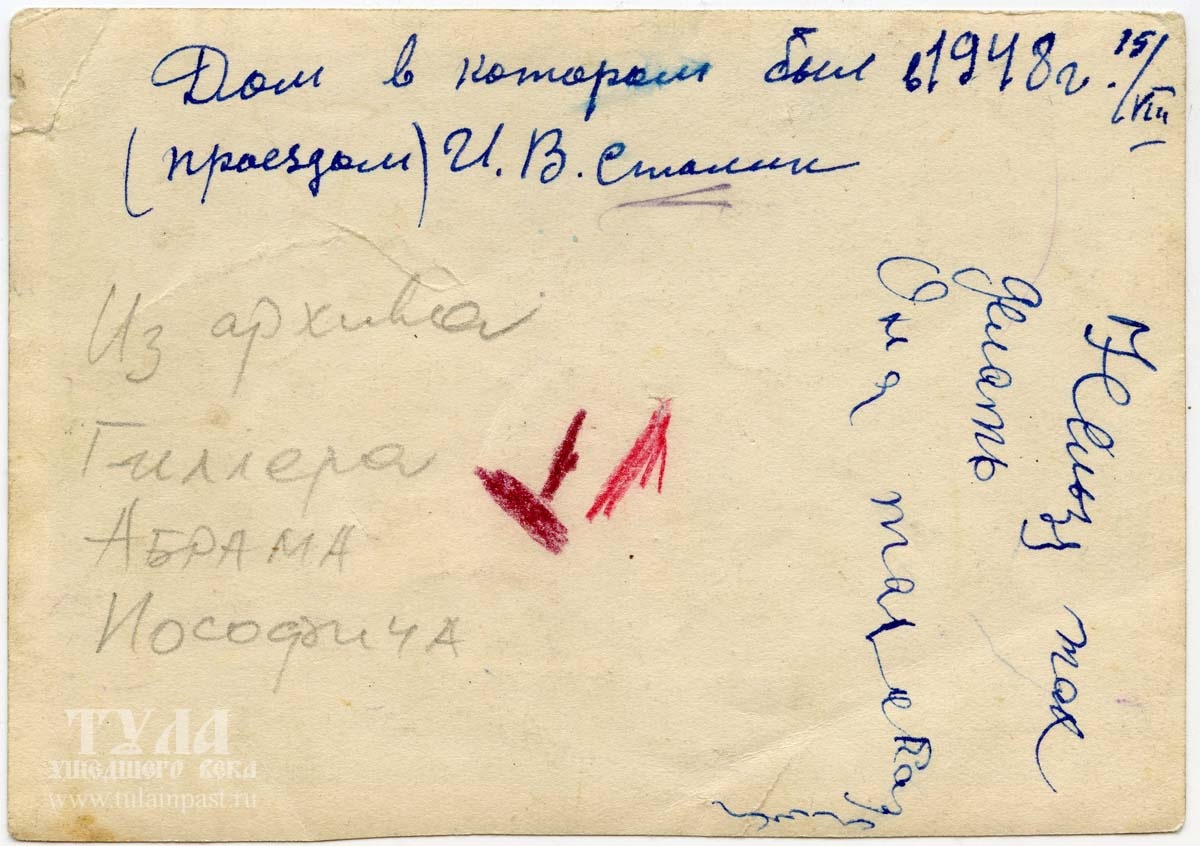 Дом в котором был в 1948 г. 15/VIII
(проездом) И. В. Сталин
Из архива
Гиллера
АБРАМА
Иософича
так
делать
Она
ТУЛА
УШЕДШЕГО ВЕКА
www.tulampast.ru